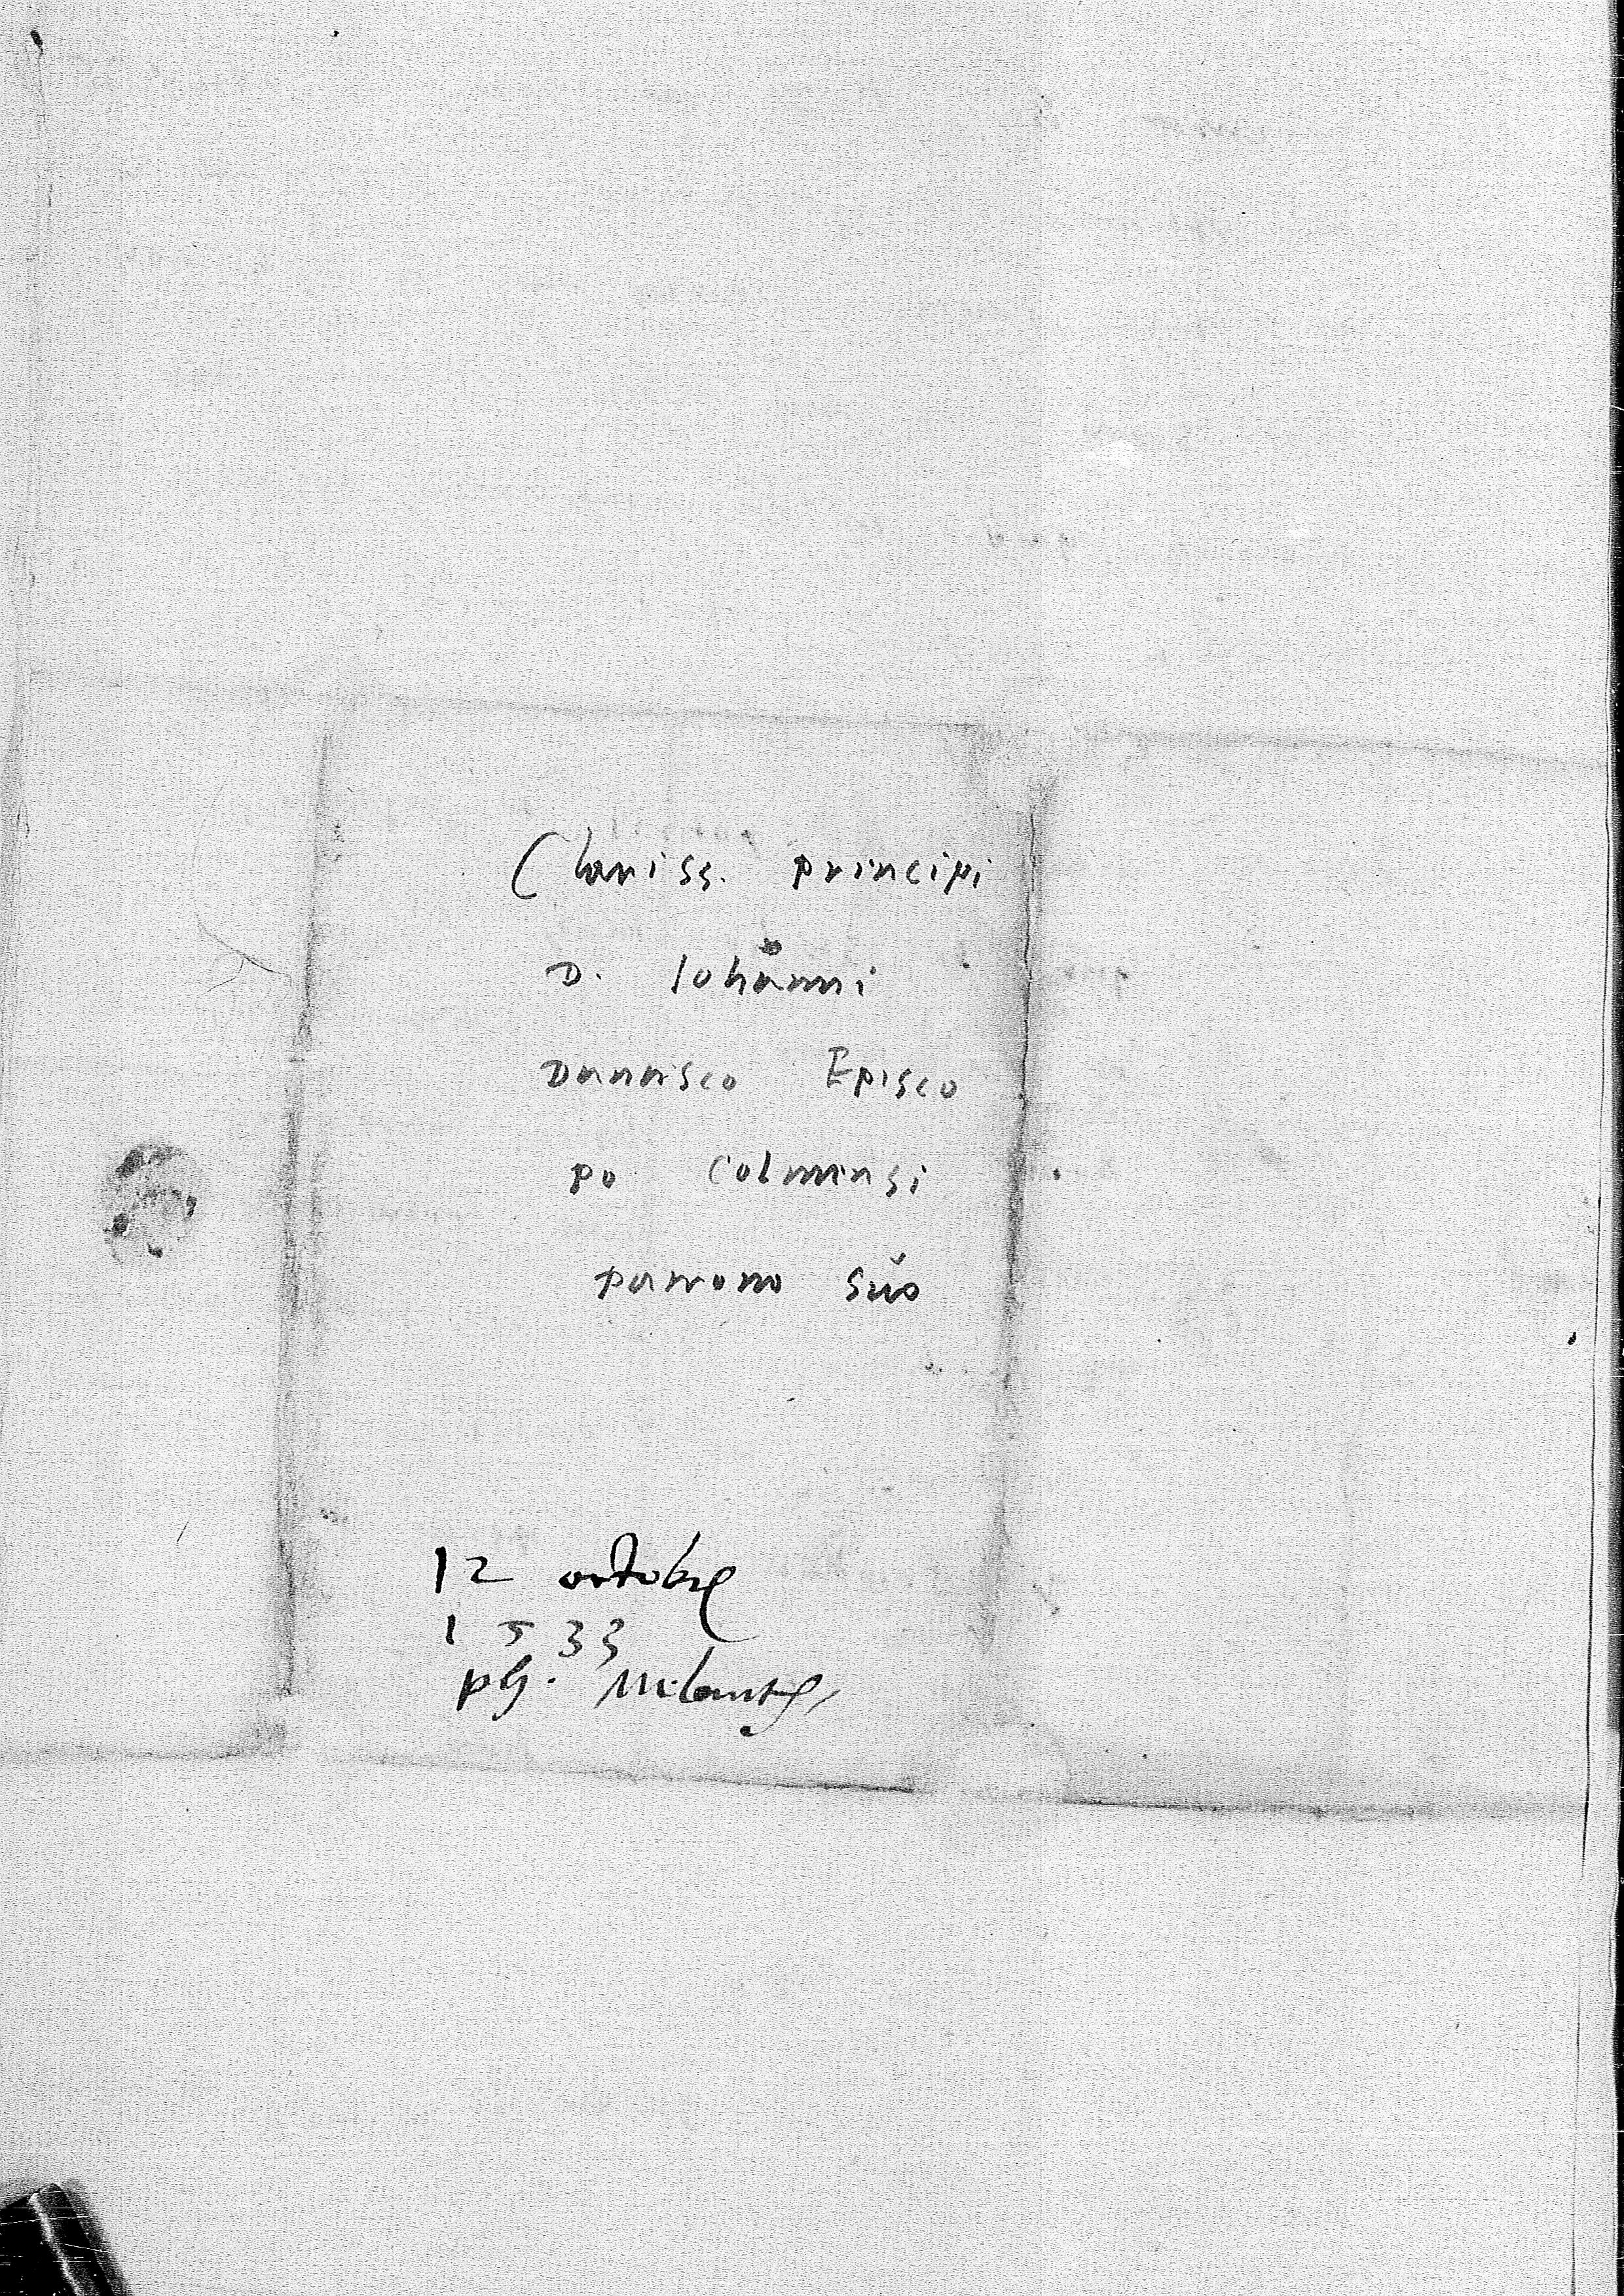 Clariss. principi
D. Iohanni
Dantisco Episco
po Colmensi
patrono suo
12 octobr
1533
ph. Melanch